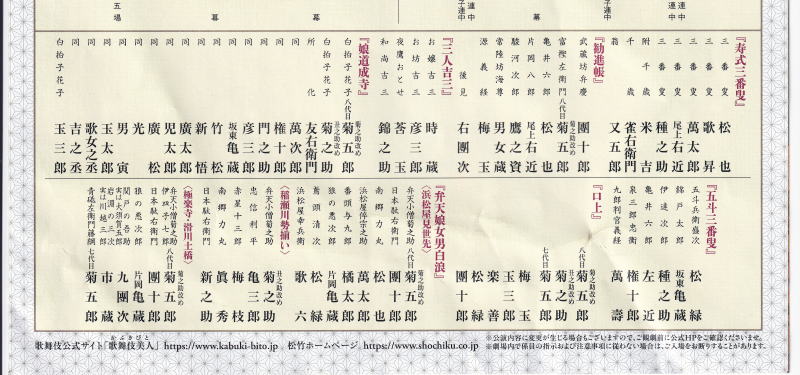 連中
連中
子連中
幕
連中
子連中
幕
幕
五場
『寿式三番叟』
三番叟 松也
三番叟 歌昇
三番叟 萬太郎
三番叟 尾上右近
三番叟 種之助
附千歳 米吉
千歳 雀右衛門
翁 又五郎
『勧進帳』
武蔵坊弁慶 團十郎
富樫左衛門 八代目 菊之助改め 菊五郎
亀井六郎 松也
片岡八郎 尾上右近
駿河次郎 鷹之資
常陸坊海尊 男女蔵
源義経 梅玉
後見 右團次
『三人吉三』
お嬢吉三 時蔵
お坊吉三 彦三郎
夜鷹おとせ 莟玉
和尚吉三 錦之助
『娘道成寺』
白拍子花子 八代目 菊之助改め 菊五郎
白拍子花子 丑之助改め 菊之助
所化 友右衛門
同 萬次郎
同 権十郎
同 門之助
同 彦三郎
同 坂東亀蔵
同 竹松
同 新悟
同 廣太郎
同 児太郎
同 廣松
同 男寅
同 玉太郎
同 歌女之丞
同 吉之丞
白拍子花子 玉三郎
『五斗三番叟』
五斗兵衛盛次 松緑
錦戸太郎 坂東亀蔵
伊達次郎 種之助
亀井六郎 左近
泉三郎忠衡
九郎判官義経 萬壽
『口上』
八代目 菊之助改め 菊五郎
丑之助改め 菊之助
七代目 菊五郎
梅玉
玉三郎
楽善
松緑
團十郎
『弁天娘女男白浪』
〈浜松屋見世先〉
弁天小僧菊之助 八代目 菊之助改め 菊五郎
日本駄右衛門 團十郎
南郷力丸 松也
浜松屋倅宗之助 萬太郎
番頭与九郎 橘太郎
狼の悪次郎 片岡亀蔵
鳶頭清次 松緑
浜松屋幸兵衛 歌六
〈稲瀬川勢揃い〉
弁天小僧菊之助 丑之助改め 菊之助
忠信利平 亀三郎
赤星十三郎 梅枝
南郷力丸 眞秀
日本駄右衛門 新之助
〈極楽寺・滑川土橋〉
弁天小僧菊之助 八代目 菊之助改め 菊五郎
伊皿子七郎
日本駄右衛門 團十郎
狼の悪次郎 片岡亀蔵
関戸の吾助 実は大須賀五郎 九團次
岩渕の三次 実は川越三郎 市蔵
青砥左衛門藤綱 七代目 菊五郎
歌舞伎公式サイト「歌舞伎美人」 https://www.kabuki-bito.jp 松竹ホームページ https://www.shochiku.co.jp
かぶきびと
※公演内容に変更が生じる場合もございますので、ご観劇前に公式HPをご確認くださいませ。
※劇場内で係員の指示および注意事項に従わない場合は、ご入場をお断りすることがあります。